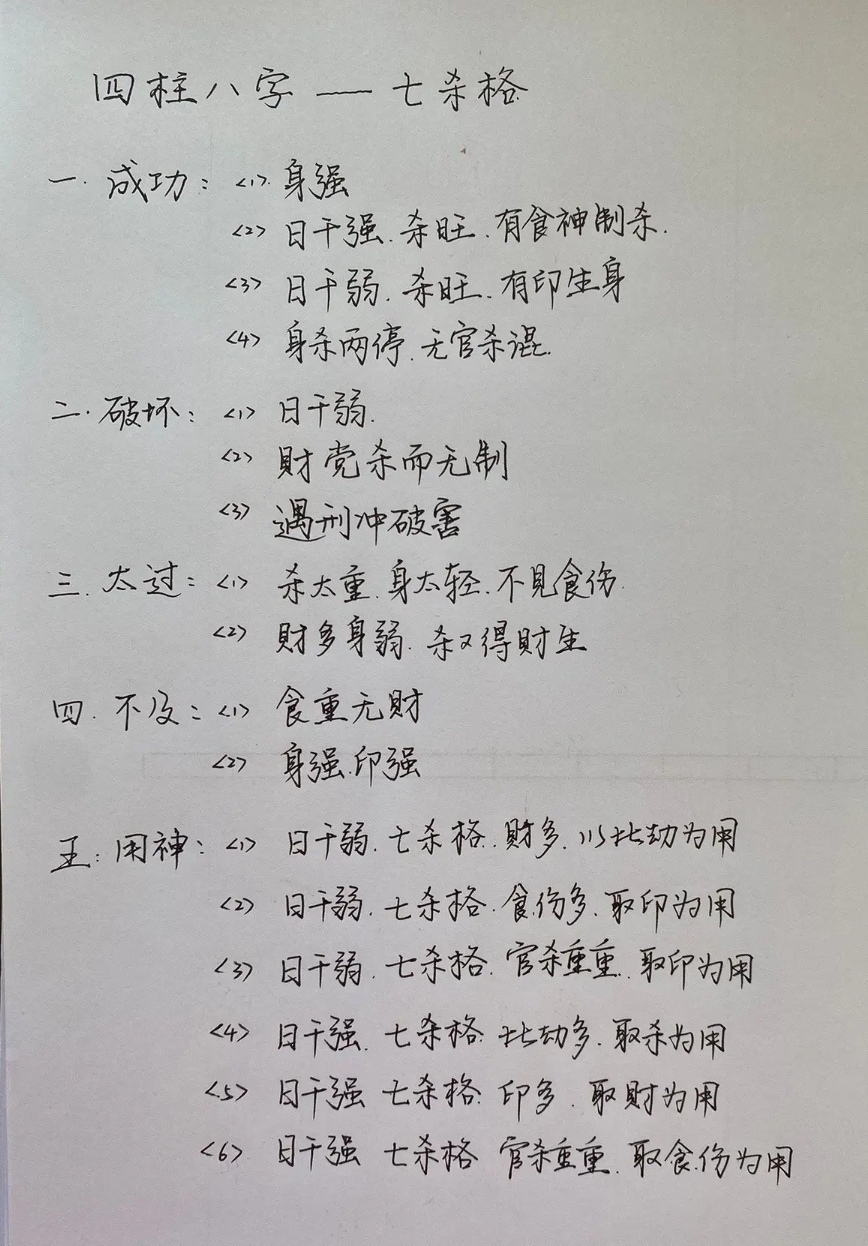 四柱八字 —— 七杀格
一. 成功: <1>. 身强
<2> 日干强. 杀旺. 有食神制杀.
<3> 日干弱. 杀旺. 有印生身
<4> 身杀两停. 无官杀混.
二. 破坏: <1> 日干弱.
<2> 財党杀而无制
<3> 遇刑冲破害
三. 太过: <1> 杀太重. 身太轻. 不见食伤.
<2> 財多身弱. 杀又得財生
四. 不及: <1> 食重无財
<2> 身强. 印强
五: 用神: <1> 日干弱. 七杀格. 財多. 以比劫为用
<2> 日干弱. 七杀格. 食伤多. 取印为用
<3> 日干弱. 七杀格. 官杀重重. 取印为用
<4> 日干强. 七杀格. 比劫多. 取杀为用
<5> 日干强 七杀格. 印多. 取財为用
<6> 日干强 七杀格 官杀重重. 取食伤为用